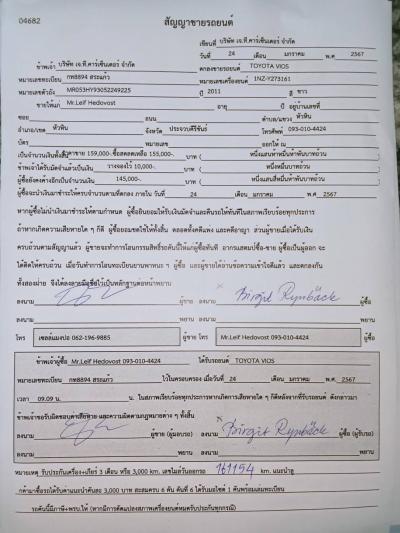 04682
สัญญาขายรถยนต์
เขียนที่ บริษัท เจ.ที.คาร์เซ็นเตอร์ จำกัด
วันที่ 24 เดือน มกราคม พ.ศ. 2567
ข้าพเจ้า บริษัท เจ.ที.คาร์เซ็นเตอร์ จำกัด ตกลงขายรถยนต์ TOYOTA VIOS
หมายเลขทะเบียน กพ8894 สระแก้ว หมายเลขเครื่องยนต์ 1NZ-Y273161
หมายเลขตัวถัง MR053HY93052249225 ปี 2011 สี ขาว
ขายให้แก่ Mr.Leif Hedovost อายุ ปี อยู่บ้านเลขที่
ซอย ถนน ตำบล/แขวง หัวหิน
อำเภอ/เขต หัวหิน จังหวัด ประจวบคีรีขันธ์ โทรศัพท์ 093-010-4424
บัตร หมายเลข ออกให้ ณ
เป็นจำนวนเงินทั้งสิ้น ราคาขาย 159,000-.ซื้อสดลดเหลือ 155,000-. บาท ( หนึ่งแสนห้าหมื่นห้าพันบาทถ้วน
ข้าพเจ้าได้รับมัดจำแล้วเป็นเงิน วางจองไว้ 10,000-. บาท ( หนึ่งหมื่นบาทถ้วน
ผู้ซื้อยังคงค้างอีกเป็นจำนวนเงิน 145,000-. บาท ( หนึ่งแสนสี่หมื่นห้าพันบาทถ้วน
ผู้ซื้อจะนำเงินมาชำระให้ครบจำนวนตามที่ตกลง ภายใน วันที่ 24 เดือน มกราคม พ.ศ. 2567
หากผู้ซื้อไม่นำเงินมาชำระให้ตามกำหนด ผู้ซื้อยินยอมให้ริบเงินมัดจำและคืนรถให้ทันทีในสภาพเรียบร้อยทุกประการ
ถ้าหากเกิดความเสียหายใด ๆ ก็ดี ผู้ซื้อยอมชดใช้ให้ทั้งสิ้น ตลอดทั้งคดีแพ่ง และคดีอาญา ส่วนผู้ขายเมื่อได้รับเงิน
ครบถ้วนตามสัญญาแล้ว ผู้ขายจะทำการโอนกรรมสิทธิ์รถคันนี้ให้แก่ผู้ซื้อทันที อากรแสตมป์ซื้อ-ขาย ผู้ซื้อเป็นผู้ออก จะ
ได้คิดให้ครบถ้วน เมื่อวันทำการโอนทะเบียนยานพาหนะ ฯ ผู้ซื้อ และผู้ขายได้อ่านข้อความเข้าใจดีแล้ว และตกลงกัน
ทั้งสองฝ่าย จึงได้ลงลายมือชื่อไว้เป็นหลักฐานต่อหน้าพยาน
ลงนาม ผู้ขาย ลงนาม Birgit Rynbäck ผู้ซื้อ
ลงนาม พยาน ลงนาม พยาน
โทร เซลล์แมงปอ 062-196-9885 ผู้ขาย โทร Mr.Leif Hedovost 093-010-4424 ผู้ซื้อ
ข้าพเจ้าผู้ซื้อ Mr.Leif Hedovost 093-010-4424 ได้รับรถยนต์ TOYOTA VIOS
หมายเลขทะเบียน กพ8894 สระแก้ว ไว้ในครอบครอง เมื่อวันที่ 24 เดือน มกราคม พ.ศ. 2567
เวลา 09.09 น. น. ในสภาพเรียบร้อยทุกประการหากเกิดการเสียหายใด ๆ ก็ดีหลังจากที่รับรถยนต์ ดังกล่าวมา
ข้าพเจ้าขอรับผิดชอบค่าเสียหาย และความผิดตามกฎหมายต่าง ๆ ทั้งสิ้น
ลงนาม ผู้ขาย (ผู้มอบรถ) ลงนาม Birgit Rynbäck ผู้ซื้อ (ผู้รับรถ)
ลงนาม พยาน ลงนาม พยาน
หมายเหตุ รับประกันเครื่อง+เกียร์ 3 เดือน หรือ 3,000 km. เลขไมล์วันออกรถ 161154 km. แนะนำลู
กค้ามาซื้อรถได้รับค่าแนะนำคันละ 3,000 บาท สะสมครบ 6 คัน คันที่ 6 ได้รับมอไซค์ 1 คันพร้อมเล่มทะเบียน
รถคันนี้มีภาษี+พรบ.ให้ (หากมีการดัดแปลงสภาพเครื่องยนต์หมดรับประกันทุกกรณี)